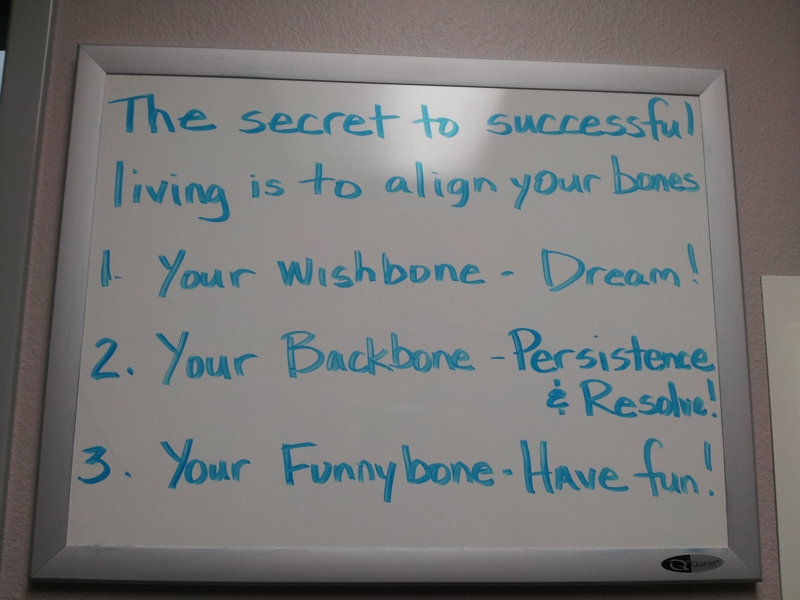 The secret to successful
living is to align your bones
1. Your Wishbone - Dream!
2. Your Backbone - Persistence
& Resolve!
3. Your Funnybone - Have fun!
Quartet